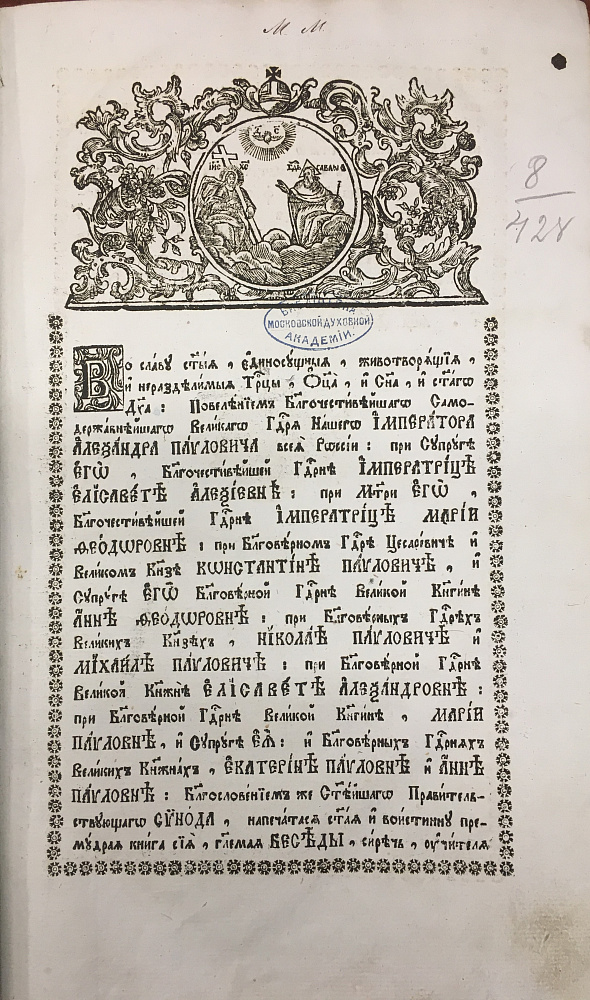 М. М.
8
428
ІИС ХС
САВАѠѲ
БИБЛІОТЕКА
МОСКОВСКОЙ ДУХОВНОЙ
АКАДЕМІИ.
Во сла́вꙋ ст҃ы́ѧ , є҆диносꙋ́щныѧ , животворѧ́щїѧ ,
и҆ неразде́лимыѧ Трⷪ҇цы , Ѻ҆ц҃а̀ , и҆ Сн҃а , и҆ ст҃а́гѡ
Дх҃а : Повелѣ́нїемъ Бл҃гочести́вѣйшагѡ Само-
держа́внѣйшагѡ Вели́кагѡ Гдⷭ҇рѧ На́шегѡ ІМПЕРА́ТОРА
АЛЕѮА́НДРА ПА́ѴЛОВИЧА всеѧ̀ Рѡссі́и : при Сꙋпрꙋ́гѣ
Є҆ГѠ̀ , Бл҃гочести́вѣйшей Гдⷭ҇рнѣ ІМПЕРАТРІ́ЦѢ
ЄЛІСАВЕ́ТѢ АЛЕѮІ́ЕВНѢ : при Мт҃ри Є҆ГѠ̀ ,
Бл҃гочести́вѣйшей Гдⷭ҇рнѣ ІМПЕРАТРІ́ЦѢ МАРІ́И
ѲЕО́ДѠРОВНѢ : при Бл҃говѣ́рномъ Гдⷭ҇рѣ Цесаре́вичѣ и҆
Вели́комъ Кн҃зѣ КѠНСТАНТІ́НѢ ПА́ѴЛОВИЧѢ , и҆
Сꙋпрꙋ́гѣ Є҆ГѠ̀ Бл҃говѣ́рной Гдⷭ҇рнѣ Вели́кой Кн҃ги́нѣ
А́ННѢ ѲЕО́ДѠРОВНѢ : при Бл҃говѣ́рныхъ Гдⷭ҇рѣхъ
Вели́кихъ Кн҃зѣхъ , НІКОЛА́Ѣ ПА́ѴЛОВИЧѢ и҆
МІХАИ́ЛѢ ПА́ѴЛОВИЧѢ : при Бл҃говѣ́рной Гдⷭ҇рнѣ
Вели́кой Кн҃жнѣ̀ ЄЛІСАВЕ́ТѢ АЛЕѮА́НДРОВНѢ :
при Бл҃говѣ́рной Гдⷭ҇рнѣ Вели́кой Кн҃ги́нѣ , МАРІ́И
ПА́ѴЛОВНѢ , и҆ Сꙋпрꙋ́гѣ Є҆Ѧ̀ : и҆ Бл҃говѣ́рныхъ Гдⷭ҇рнѧхъ
Вели́кихъ Кн҃жна́хъ , ЄКАТЕРІ́НѢ ПА́ѴЛОВНѢ и҆ А́ННѢ
ПА́ѴЛОВНѢ : Бл҃гослове́нїемъ же Ст҃ѣ́йшагѡ Прави́тель-
ствꙋющагѡ СѴНО́ДА , напеча́тасѧ ст҃а́ѧ и҆ вои́стиннꙋ пре-
мꙋ́драѧ кни́га сїѧ̀ , гл҃емаѧ БЕСѢ́ДЫ , си́рѣчь , оу҆чи́телѧ